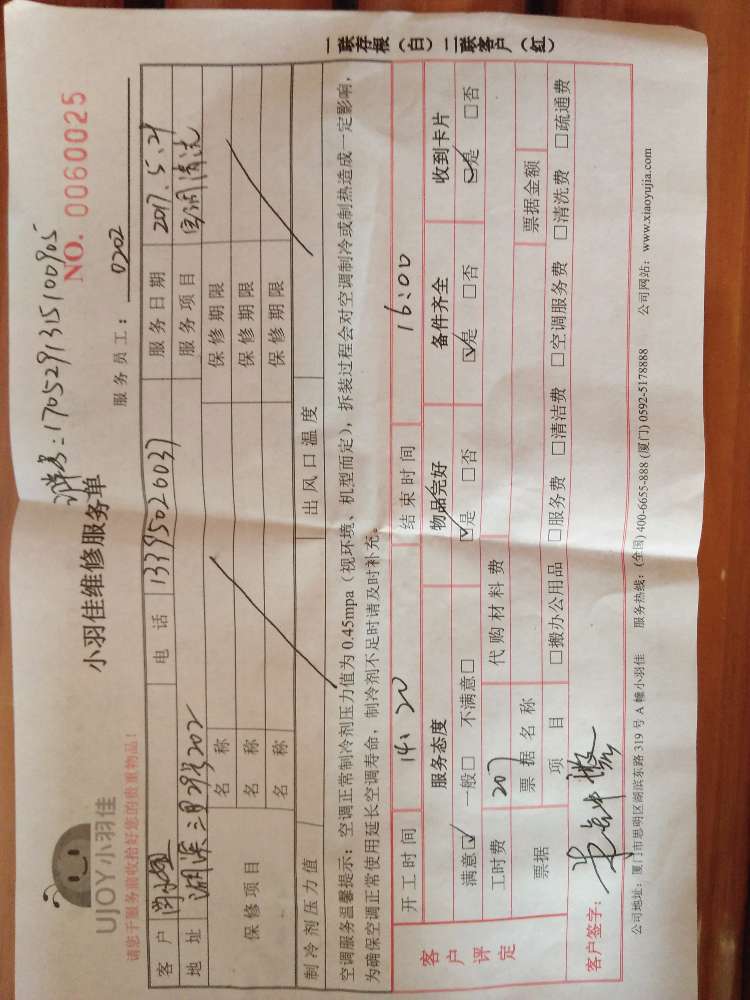 UJOY小羽佳
小羽佳维修服务单
单号:1705291315100905
NO. 0060025
请您于服务前收拾好您的贵重物品!
服务员工: 0202
客户 电话 13395026037 服务日期 2017.5.29
地址 湖滨三里29号202 服务项目 空调清洗
保修项目 名称 保修期限
名称 保修期限
名称 保修期限
制冷剂压力值 出风口温度
空调服务温馨提示:空调正常制冷剂压力值为0.45mpa(视环境、机型而定),拆装过程会对空调制冷或制热造成一定影响,
为确保空调正常使用延长空调寿命,制冷剂不足时请及时补充。
开工时间 14:20 结束时间 16:00
客户评定 服务态度 物品完好 备件齐全 收到卡片
满意☑ 一般□ 不满意□ ☑是 □否 ☑是 □否 ☑是 □否
工时费 207 代购材料费
票据 票据名称 票据金额
项目 □搬办公用品 □服务费 □清洁费 □空调服务费 □清洗费 □疏通费
客户签字:
公司地址:厦门市思明区湖滨东路319号A幢小羽佳 服务热线:(全国)400-6655-888 (厦门)0592-5178888 公司网站:www.xiaoyujia.com
一联存根(白)二联客户(红)